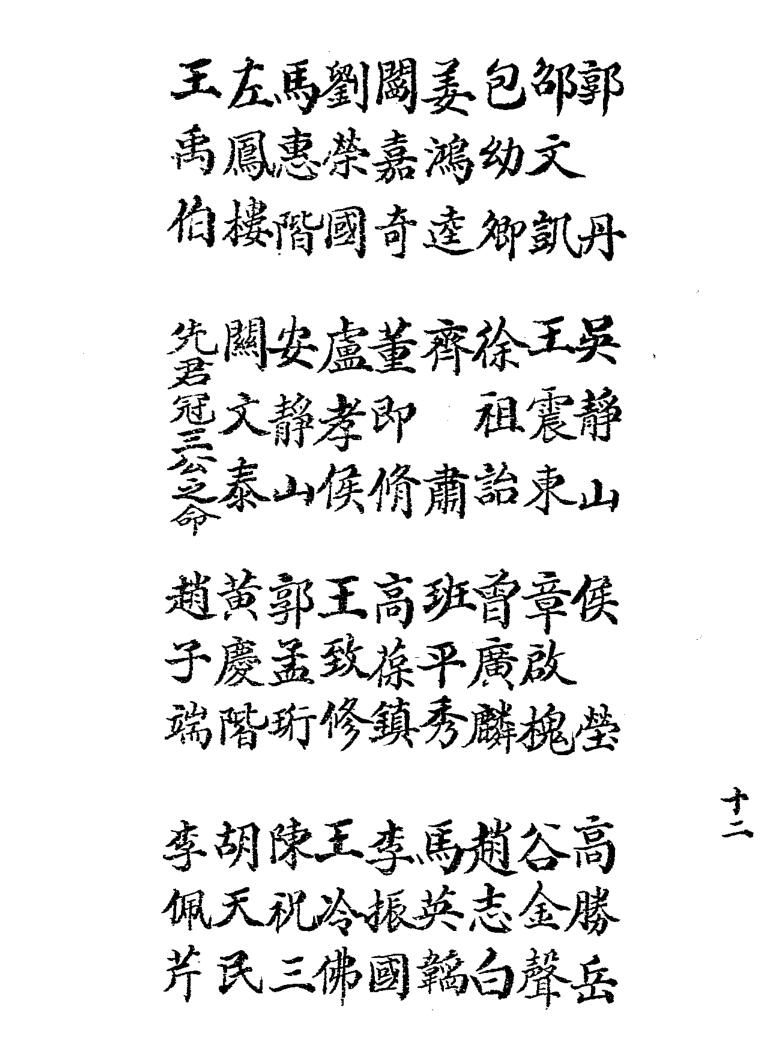 郭丹
邵文凱
包幼卿
姜鴻逵
闞嘉奇
劉榮國
馬惠階
左鳳樓
王禹伯
吳靜山
王震東
徐祖詒
齊肅
董即脩
盧孝侯
安靜山
關文泰
先君冠三公之命
侯瑩
章啟槐
曾廣麟
班平秀
高葆鎮
王致修
郭孟珩
黃慶階
趙子端
高勝岳
谷金聲
趙志白
馬英韜
李振國
王冷佛
陳祝三
胡天民
李佩芹
十二